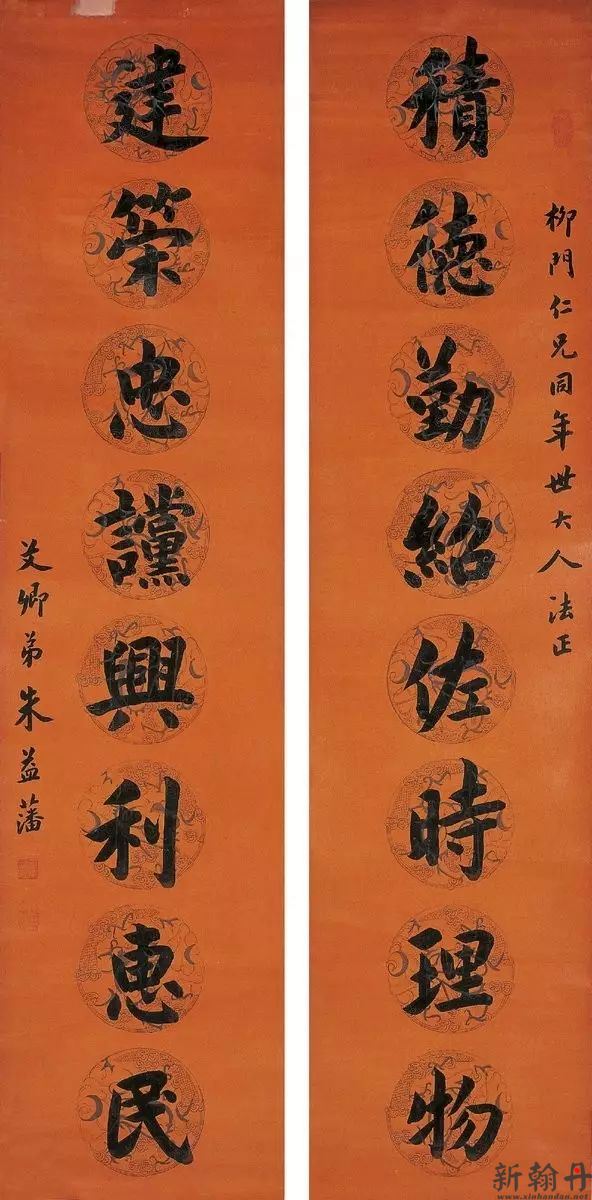 柳門仁兄同年世大人法正
積德勤紹佐時理物
建策忠讜興利惠民
艾卿弟朱益藩
新翰丹
www.xinhandan.net